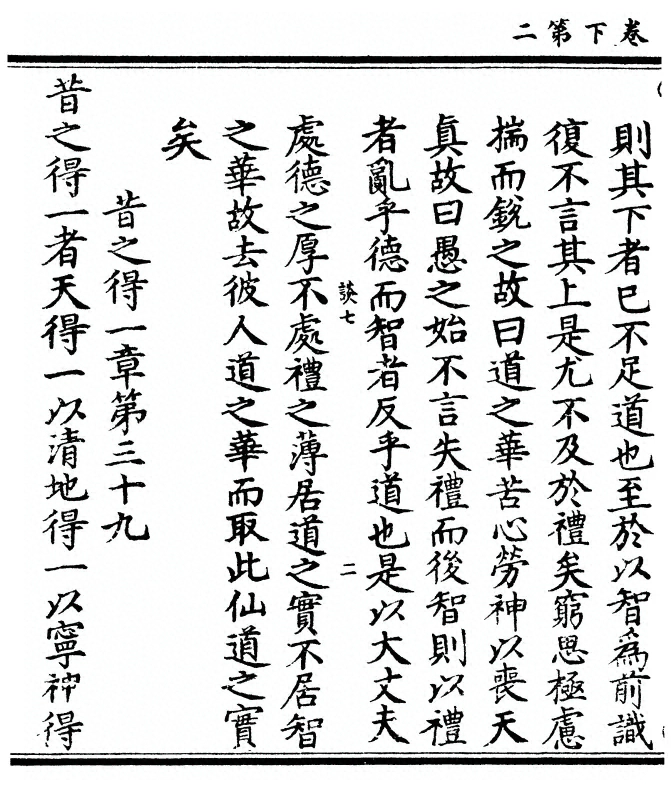 卷下第二
則其下者已不足道也至於以智爲前識
復不言其上是尤不及於禮矣窮思極慮
揣而銳之故曰道之華苦心勞神以喪天
真故曰愚之始不言失禮而後智則以禮
者亂乎德而智者反乎道也是以大丈夫
談七
二
處德之厚不處禮之薄居道之實不居智
之華故去彼人道之華而取此仙道之實
矣
昔之得一章第三十九
昔之得一者天得一以清地得一以寧神得